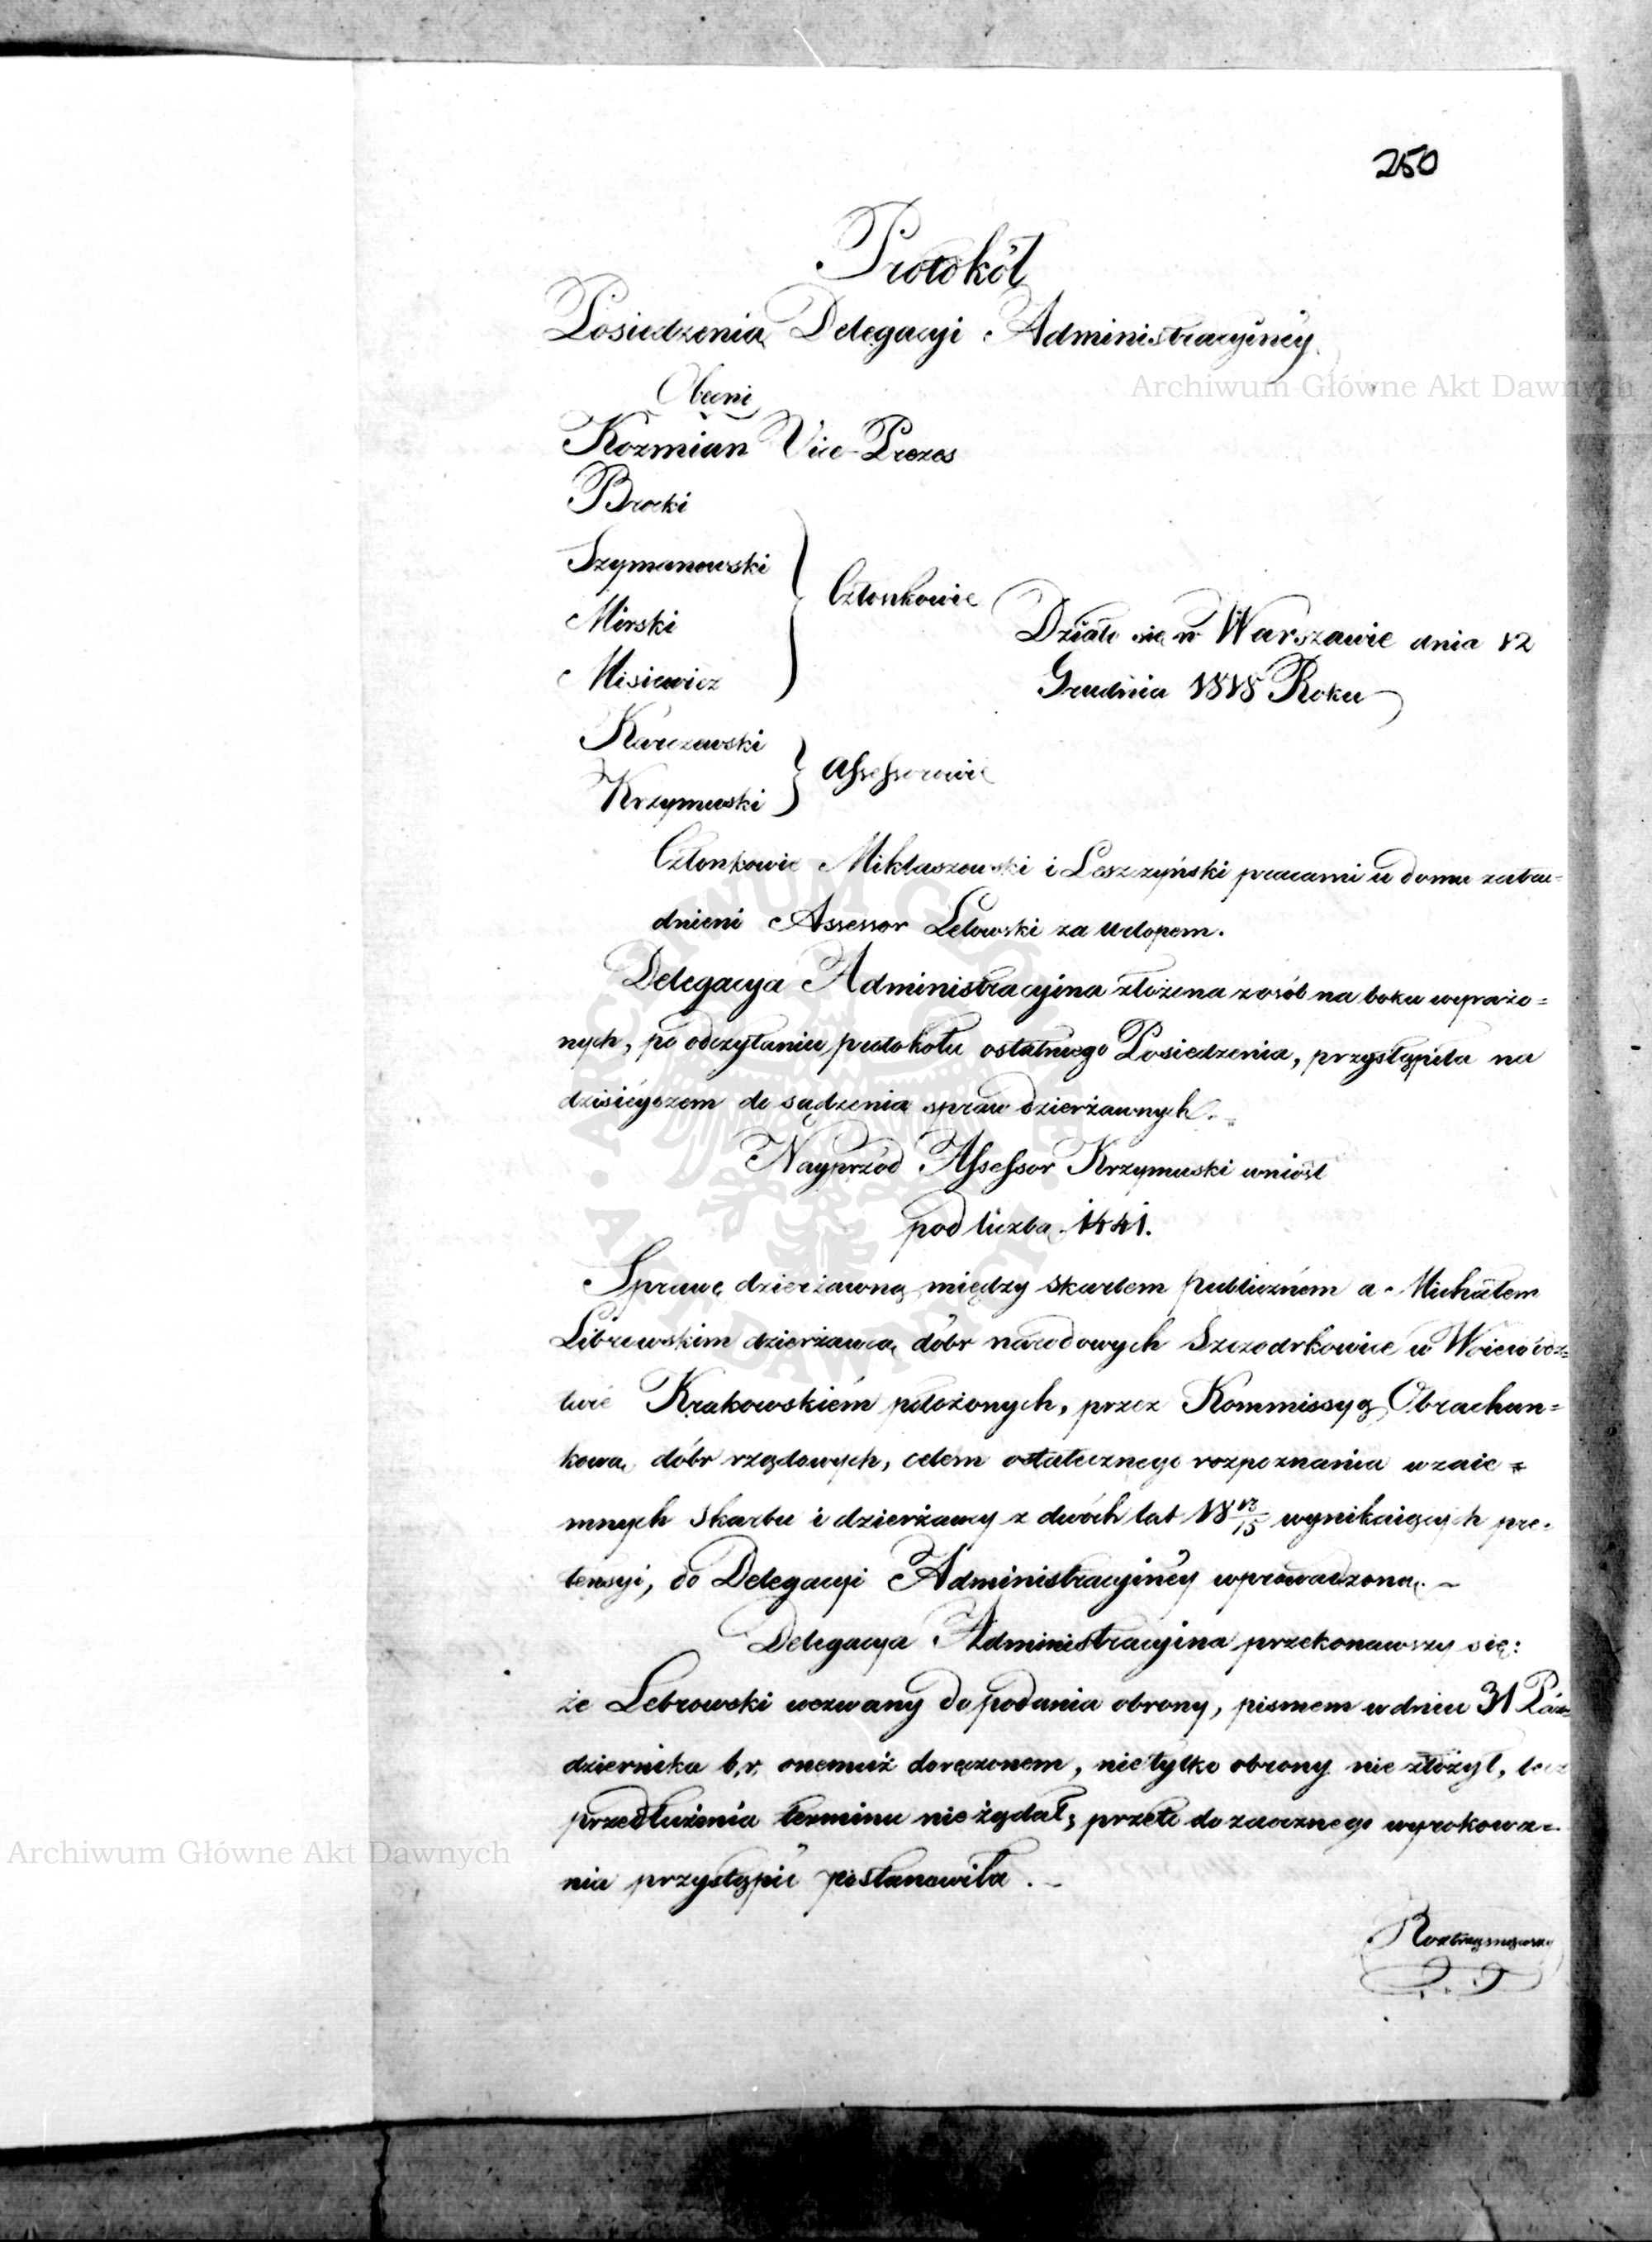 250
Protokół
Posiedzenia Delegacyi Administracyinéy
Obecni
Kozmian Vice-Prezes
Brocki
Szymanowski
Mirski
Misiewicz
Członkowie
Działo się w Warszawie dnia 12
Grudnia 1818 Roku
Karczewski
Krzymuski
Assessorowie
Członkowie Miklaszewski i Leszczyński pracami w domu zatru=
dnieni Assessor Lelowski za Urlopem.
Delegacya Administracyina złożona z osób na boku wyrażo=
nych, po odczytaniu protokołu ostatniego Posiedzenia, przystąpiła na
dzisiéyszem do sądzenia spraw dzierżawnych.
Nayprzód Assessor Krzymuski wniósł
pod liczbą 1441.
Sprawę dzierżawną między skarbem publiczném a Michałem
Librewskim dzierżawcą dóbr narodowych Szczodrkowice w Woiewódz=
twie Krakowskiém położonych, przez Kommissyą Obrachun=
kową dóbr rządowych, celem ostatecznego rozpoznania wzaie=
mnych Skarbu i dzierżawcy z dwóch lat 18 13/15 wynikaiących pre=
tensyi, do Delegacyi Administracyinéy wprowadzoną.
Delegacya Administracyina przekonawszy się:
że Lebrowski wezwany do podania obrony, pismem w dniu 31 Paź=
dziernika b.r. onemuż doręczonem, nietylko obrony nie złożył, lecz
przedłużenia terminu nie żądał; przeto do zaocznego wyrokowa=
nia przystąpić postanowiła.
Roztrząsnąwszy
Archiwum Główne Akt Dawnych
Archiwum Główne Akt Dawnych
ARCHIWUM GŁÓWNE AKT DAWNYCH